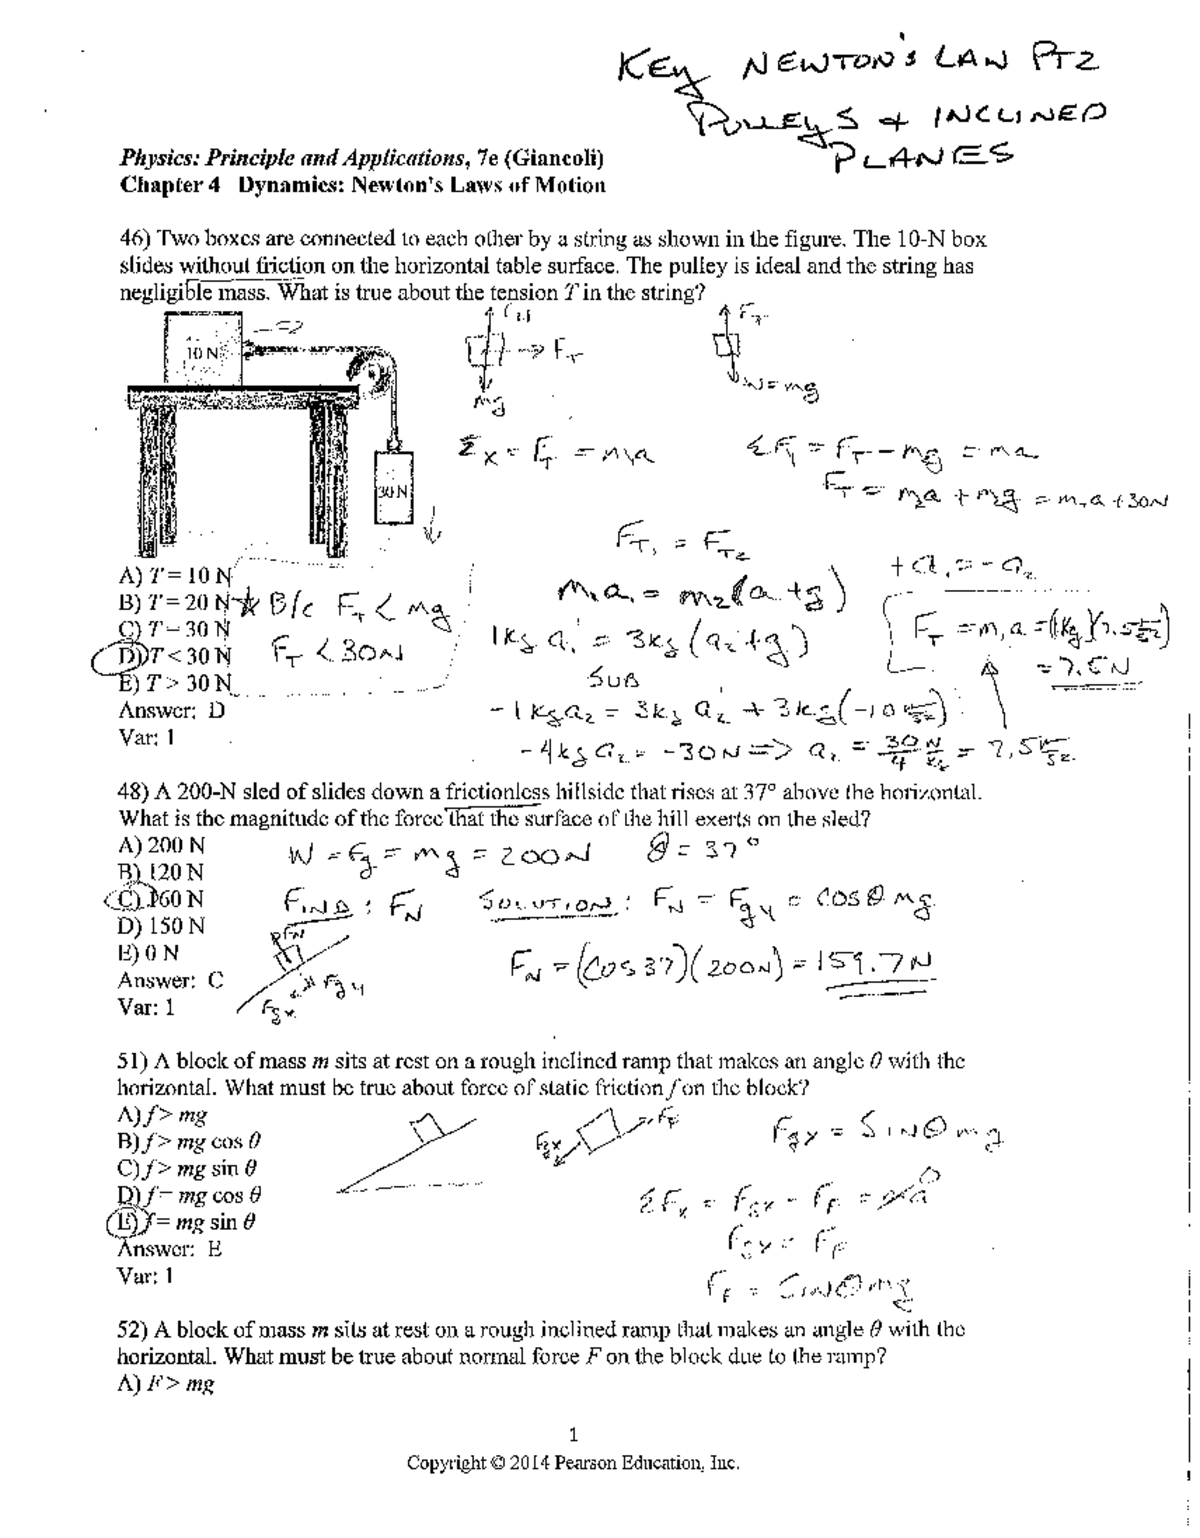 KEY NEWTON'S LAW PT2
PULLEYS & INCLINED
PLANES
Physics: Principle and Applications, 7e (Giancoli)
Chapter 4 Dynamics: Newton's Laws of Motion
46) Two boxes are connected to each other by a string as shown in the figure. The 10-N box
slides without friction on the horizontal table surface. The pulley is ideal and the string has
negligible mass. What is true about the tension T in the string?
10 N
30 N
→ F_T
mg
F_T
W = mg
Σ_x = F_T = m₁a
ΣF_y = F_T − mg = ma
F_T = m₂a + m₂g = m₂a + 30N
F_T₁ = F_T₂
+a₁ = −a₂
m₁a₁ = m₂(a + g)
F_T = m₁a = (1kg)(7.5 m/s²)
= 7.5 N
1kg a₁ = 3kg (a₂ + g)
SUB
−1kg a₂ = 3kg a₂ + 3kg(−10 m/s²)
−4kg a₂ = −30N => a₂ = 30/4 N/kg = 7.5 m/s²
A) T = 10 N
B) T = 20 N
C) T = 30 N
D) T < 30 N
E) T > 30 N
Answer: D
Var: 1
★ B/c F_T < mg
F_T < 30N
48) A 200-N sled of slides down a frictionless hillside that rises at 37° above the horizontal.
What is the magnitude of the force that the surface of the hill exerts on the sled?
A) 200 N
B) 120 N
C) 160 N
D) 150 N
E) 0 N
Answer: C
Var: 1
W = Fg = mg = 200N θ = 37°
FIND: F_N SOLUTION: F_N = F_gy = COSθ mg
F_N = (COS 37)(200N) = 159.7N
F_N
F_gy
F_gx
51) A block of mass m sits at rest on a rough inclined ramp that makes an angle θ with the
horizontal. What must be true about force of static friction f on the block?
A) f > mg
B) f > mg cos θ
C) f > mg sin θ
D) f = mg cos θ
E) f = mg sin θ
Answer: E
Var: 1
F_gx
F_F
F_gx = SINθ mg
ΣF_x = F_gx − F_F = ma 0
F_gx = F_F
F_F = SINθ mg
52) A block of mass m sits at rest on a rough inclined ramp that makes an angle θ with the
horizontal. What must be true about normal force F on the block due to the ramp?
A) F > mg
1
Copyright © 2014 Pearson Education, Inc.